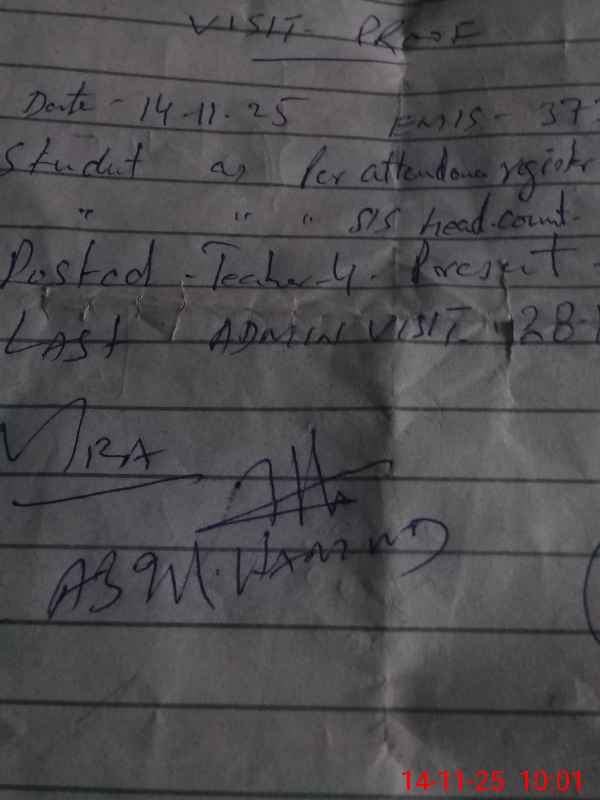 VISIT PROOF
Date - 14-11-25 EMIS - 37
Student as per attendance registr
" " " SIS head count.
Posted - Teacher-4. Present -
LAST ADMIN VISIT 28-
14-11-25 10:01